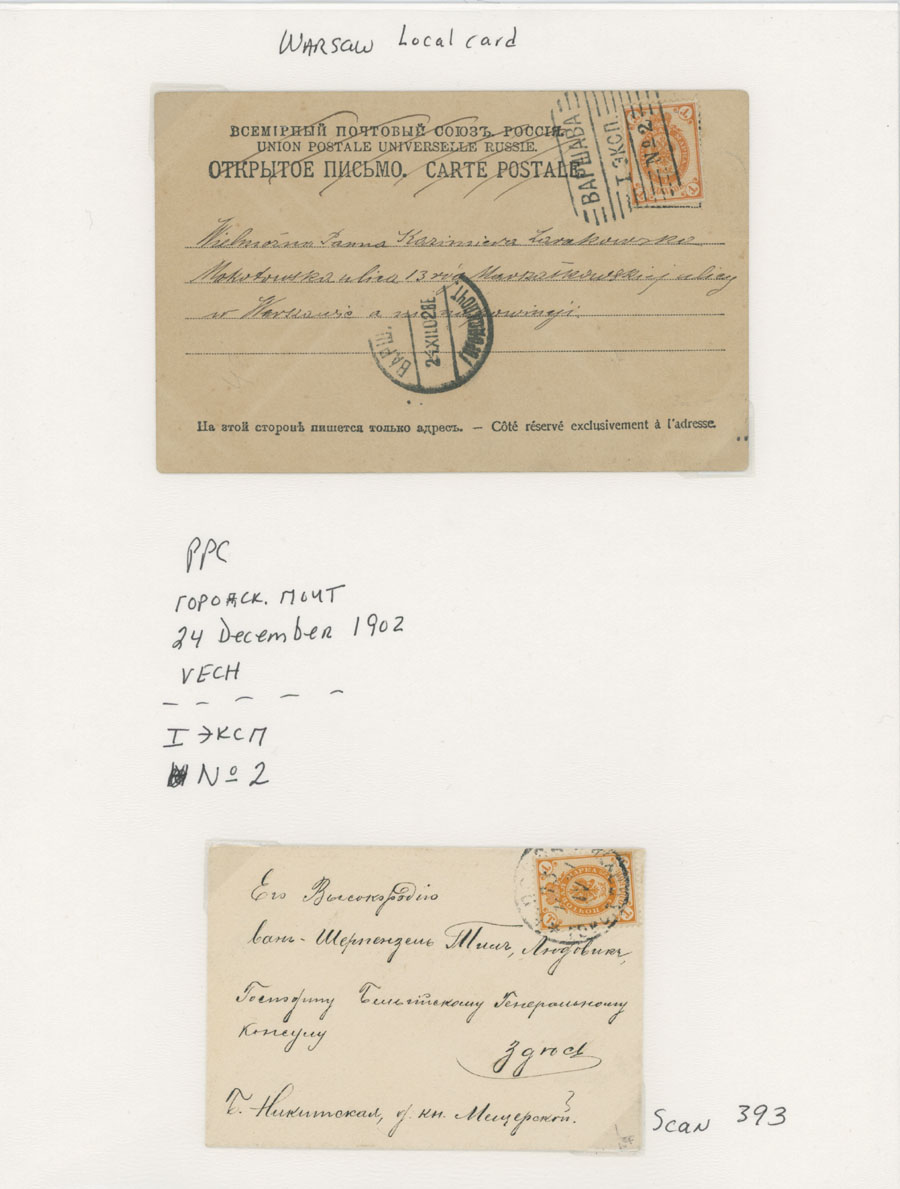 Warsaw Local card
ВСЕМІРНЫЙ ПОЧТОВЫЙ СОЮЗЪ. РОССІЯ.
UNION POSTALE UNIVERSELLE RUSSIE.
ОТКРЫТОЕ ПИСЬМО. CARTE POSTALE.
ВАРШАВА
I ЭКСП.
№ 2
Wielmożna Panna Kazimiera
Mokotowska ulica 13 róg Marszałkowskiej ulicy
w Warszawie
ВАРШ.
24XII02ВЕ
ГОРОДСК.ПОЧТ.
На этой сторонѣ пишется только адресъ. — Côté réservé exclusivement à l'adresse.
PPC
ГОРОДСК. ПОЧТ
24 December 1902
VECH
I ЭКСП
№ 2
Его Высокородію
Людовикъ,
Господину Бельгійскому Генеральному
Консулу
Здѣсь
Б. Никитская, д. кн. Мещерской.
Scan 393